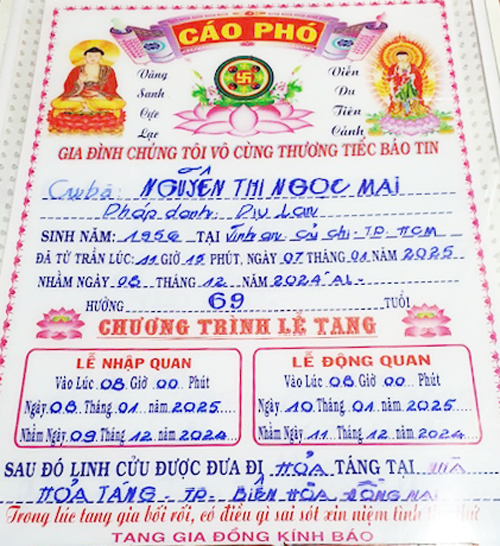 CÁO PHÓ
Vãng
Sanh
Cực
Lạc
Viễn
Du
Tiên
Cảnh
GIA ĐÌNH CHÚNG TÔI VÔ CÙNG THƯƠNG TIẾC BÁO TIN
Cụ bà: NGUYỄN THỊ NGỌC MAI
Pháp danh: Diụ Lan
SINH NĂM: 1956 TẠI Vĩnh an. Củ chi. TP. HCM
ĐÃ TỪ TRẦN LÚC: 11 GIỜ 15 PHÚT, NGÀY 07 THÁNG 01 NĂM 2025
NHẰM NGÀY 08 THÁNG 12 NĂM 2024 AL.
HƯỞNG 69 TUỔI
CHƯƠNG TRÌNH LỄ TANG
LỄ NHẬP QUAN
Vào Lúc 08 Giờ 00 Phút
Ngày 08 Tháng 01 năm 2025
Nhằm Ngày 09 Tháng 12 năm 2024
LỄ ĐỘNG QUAN
Vào Lúc 08 Giờ 00 Phút
Ngày 10 Tháng 01 năm 2025
Nhằm Ngày 11 Tháng 12 năm 2024
SAU ĐÓ LINH CỬU ĐƯỢC ĐƯA ĐI HỎA TÁNG TẠI
HỎA TÁNG - TP. BIÊN HÒA ĐỒNG NAI
Trong lúc tang gia bối rối, có điều gì sai sót xin niệm tình
TANG GIA ĐỒNG KÍNH BÁO